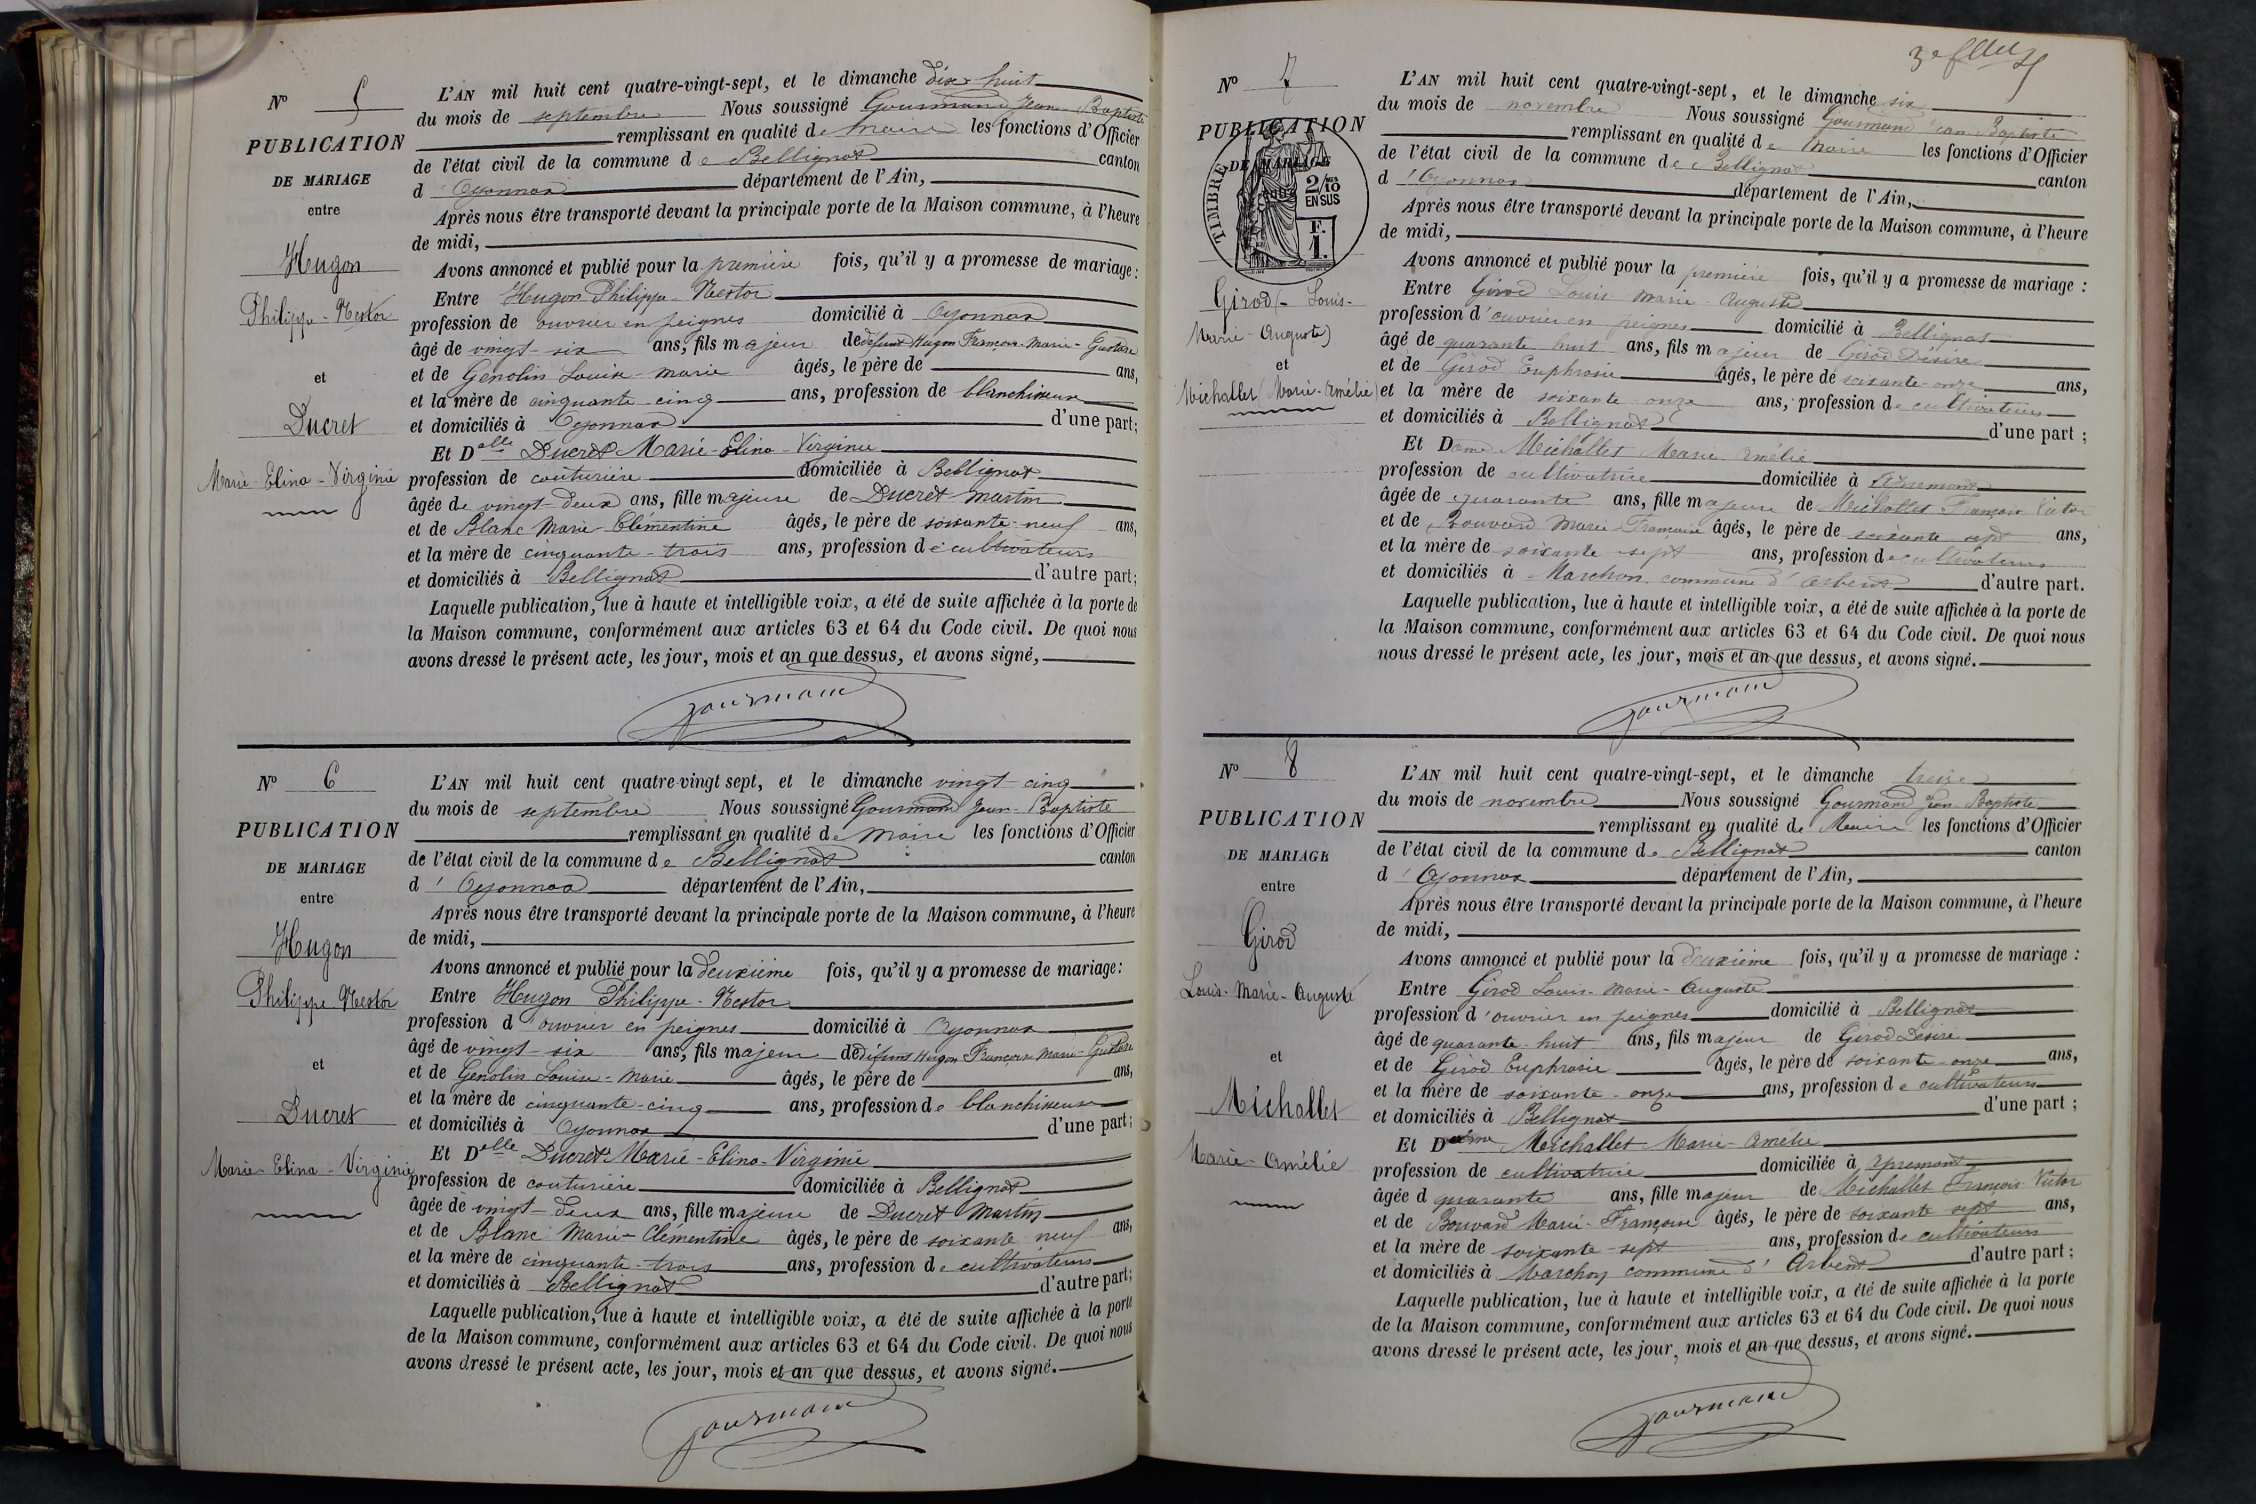 N° 5
PUBLICATION
DE MARIAGE
entre
Hugon
Philippe-Nestor
et
Ducret
Marie-Elina-Virginie
L'AN mil huit cent quatre-vingt-sept, et le dimanche dix-huit
du mois de septembre Nous soussigné Gourmand Jean-Baptiste
remplissant en qualité de maire les fonctions d'Officier
de l'état civil de la commune de Bellignat canton
d'Oyonnax département de l'Ain,
Après nous être transporté devant la principale porte de la Maison commune, à l'heure
de midi,
Avons annoncé et publié pour la première fois, qu'il y a promesse de mariage :
Entre Hugon Philippe-Nestor
profession de ouvrier en peignes domicilié à Oyonnax
âgé de vingt-six ans, fils majeur de défunt Hugon François-Marie-Gustave
et de Genolin Louise-Marie âgés, le père de ans,
et la mère de cinquante-cinq ans, profession de blanchisseuse
et domiciliés à Oyonnax d'une part;
Et Delle Ducret Marie-Elina-Virginie
profession de couturière domiciliée à Bellignat
âgée de vingt-deux ans, fille majeure de Ducret Martin
et de Blanc Marie-Clémentine âgés, le père de soixante-neuf ans,
et la mère de cinquante-trois ans, profession de cultivateurs
et domiciliés à Bellignat d'autre part;
Laquelle publication, lue à haute et intelligible voix, a été de suite affichée à la porte de
la Maison commune, conformément aux articles 63 et 64 du Code civil. De quoi nous
avons dressé le présent acte, les jour, mois et an que dessus, et avons signé,
Gourmand
N° 6
PUBLICATION
DE MARIAGE
entre
Hugon
Philippe Nestor
et
Ducret
Marie-Elina-Virginie
L'AN mil huit cent quatre-vingt sept, et le dimanche vingt-cinq
du mois de septembre Nous soussigné Gourmand Jean-Baptiste
remplissant en qualité de maire les fonctions d'Officier
de l'état civil de la commune de Bellignat canton
d'Oyonnax département de l'Ain,
Après nous être transporté devant la principale porte de la Maison commune, à l'heure
de midi,
Avons annoncé et publié pour la deuxième fois, qu'il y a promesse de mariage :
Entre Hugon Philippe-Nestor
profession d'ouvrier en peignes domicilié à Oyonnax
âgé de vingt-six ans, fils majeur de défunt Hugon François-Marie-Gustave
et de Genolin Louise-Marie âgés, le père de ans,
et la mère de cinquante-cinq ans, profession de blanchisseuse
et domiciliés à Oyonnax d'une part;
Et Delle Ducret Marie-Elina-Virginie
profession de couturière domiciliée à Bellignat
âgée de vingt-deux ans, fille majeure de Ducret Martin
et de Blanc Marie-Clémentine âgés, le père de soixante neuf ans,
et la mère de cinquante-trois ans, profession de cultivateurs
et domiciliés à Bellignat d'autre part;
Laquelle publication, lue à haute et intelligible voix, a été de suite affichée à la porte
de la Maison commune, conformément aux articles 63 et 64 du Code civil. De quoi nous
avons dressé le présent acte, les jour, mois et an que dessus, et avons signé.
Gourmand
3e
N° 7
PUBLICATION
DE MARIAGE
TIMBRE
2/10
EN SUS
F.
1.
Girod (Louis-
Marie-Auguste)
et
Michallet (Marie-Amélie)
L'AN mil huit cent quatre-vingt-sept, et le dimanche six
du mois de novembre Nous soussigné Gourmand Jean Baptiste
remplissant en qualité de maire les fonctions d'Officier
de l'état civil de la commune de Bellignat canton
d'Oyonnax département de l'Ain,
Après nous être transporté devant la principale porte de la Maison commune, à l'heure
de midi,
Avons annoncé et publié pour la première fois, qu'il y a promesse de mariage :
Entre Girod Louis-Marie-Auguste
profession d'ouvrier en peignes domicilié à Bellignat
âgé de quarante huit ans, fils majeur de Girod Désiré
et de Girod Euphrosie âgés, le père de soixante-onze ans,
et la mère de soixante onze ans, profession de cultivateurs
et domiciliés à Bellignat d'une part ;
Et Dame Michallet Marie-Amélie
profession de cultivatrice domiciliée à
âgée de quarante ans, fille majeure de Michallet François Victor
et de Bouvard Marie Françoise âgés, le père de soixante sept ans,
et la mère de soixante-sept ans, profession de cultivateurs
et domiciliés à Marchon commune d'Arbent d'autre part.
Laquelle publication, lue à haute et intelligible voix, a été de suite affichée à la porte de
la Maison commune, conformément aux articles 63 et 64 du Code civil. De quoi nous
nous dressé le présent acte, les jour, mois et an que dessus, et avons signé.
Gourmand
N° 8
PUBLICATION
DE MARIAGE
entre
Girod
Louis-Marie-Auguste
et
Michallet
Marie-Amélie
L'AN mil huit cent quatre-vingt-sept, et le dimanche treize
du mois de novembre Nous soussigné Gourmand Jean-Baptiste
remplissant en qualité de Maire les fonctions d'Officier
de l'état civil de la commune de Bellignat canton
d'Oyonnax département de l'Ain,
Après nous être transporté devant la principale porte de la Maison commune, à l'heure
de midi,
Avons annoncé et publié pour la deuxième fois, qu'il y a promesse de mariage :
Entre Girod Louis-Marie-Auguste
profession d'ouvrier en peignes domicilié à Bellignat
âgé de quarante-huit ans, fils majeur de Girod Désiré
et de Girod Euphrosie âgés, le père de soixante-onze ans,
et la mère de soixante-onze ans, profession de cultivateurs
et domiciliés à Bellignat d'une part ;
Et Dame Michallet Marie-Amélie
profession de cultivatrice domiciliée à Apremont
âgée d quarante ans, fille majeur de Michallet François Victor
et de Bouvard Marie-Françoise âgés, le père de soixante sept ans,
et la mère de soixante-sept ans, profession de cultivateurs
et domiciliés à Marchon commune d'Arbent d'autre part ;
Laquelle publication, lue à haute et intelligible voix, a été de suite affichée à la porte
de la Maison commune, conformément aux articles 63 et 64 du Code civil. De quoi nous
avons dressé le présent acte, les jour, mois et an que dessus, et avons signé.
Gourmand